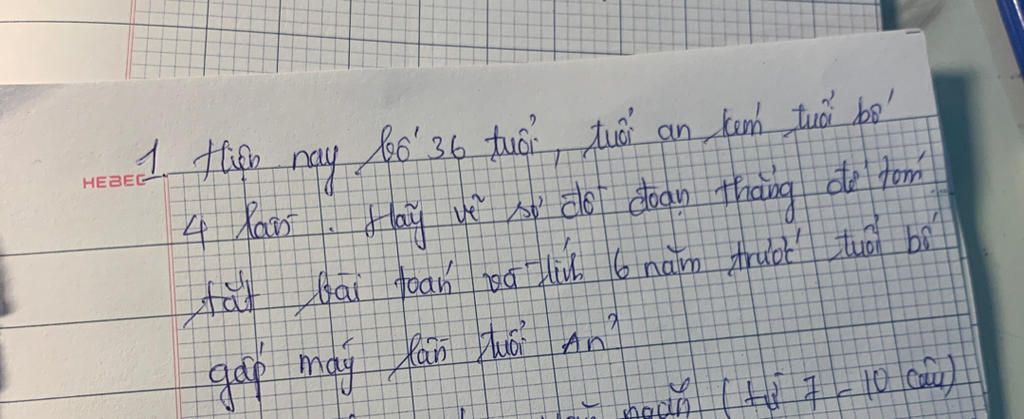 HEBEC
1. Hiện nay bố 36 tuổi, tuổi an kém tuổi bố
4 lần. Hãy vẽ sơ đồ đoạn thẳng để tóm
tắt bài toán và tính 6 năm trước tuổi bố
gấp mấy lần tuổi An?
ngắn (từ 7 - 10 câu)